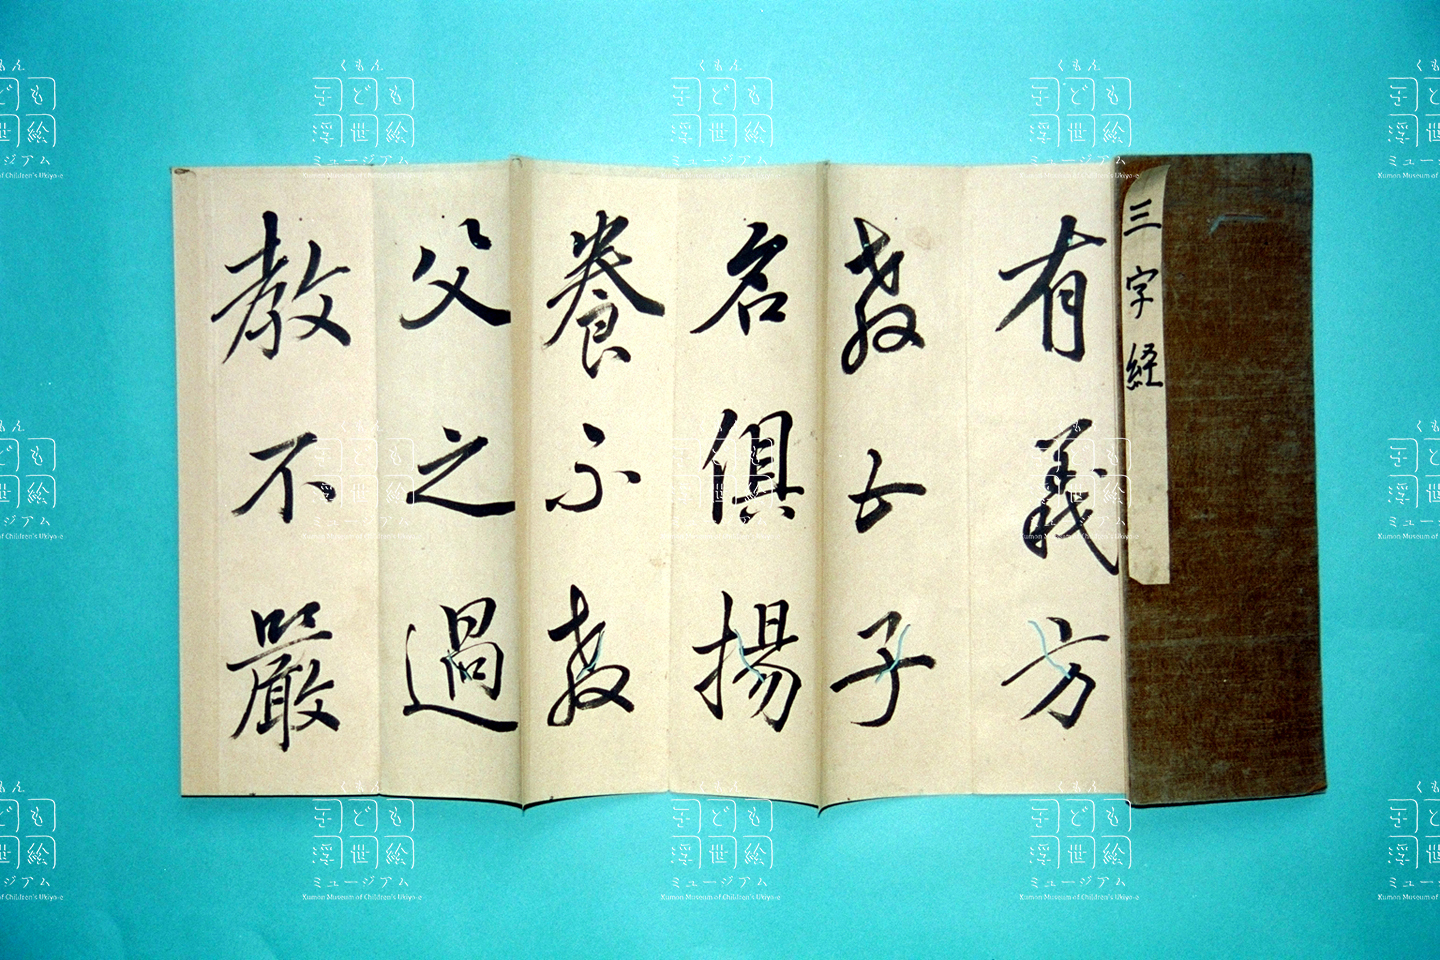 三字経
有義方
教五子
名俱揚
養不教
父之過
教不嚴
くもん
子ども
浮世絵
ミュージアム
Kumon Museum of Children's Ukiyo-e